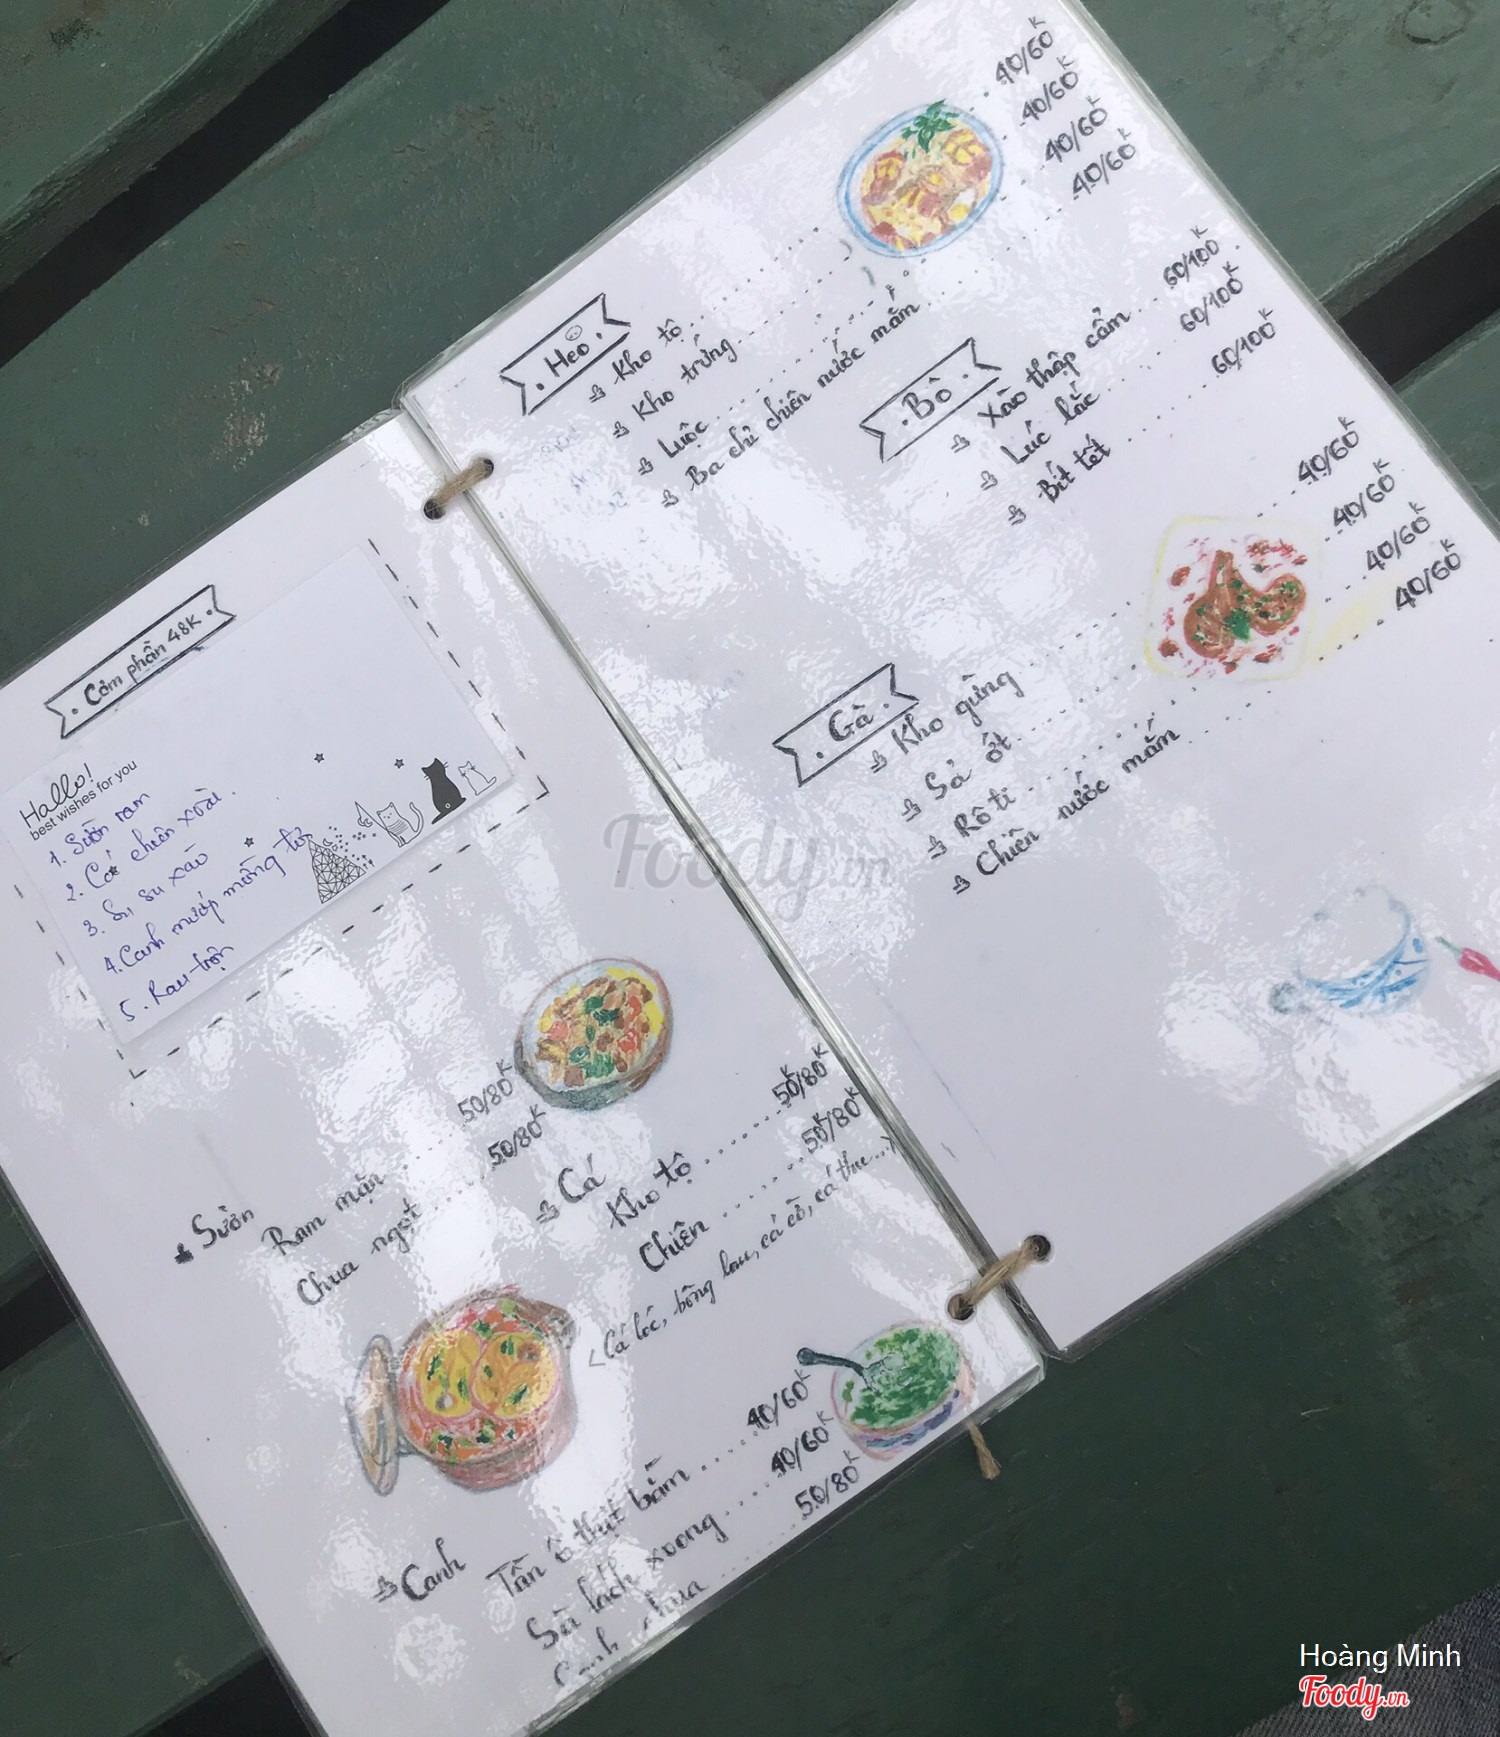 Cơm phần 48K
Hallo!
best wishes for you
1. Sườn ram
2. Cá chiên xoài.
3. Su su xào
4. Canh mướp mồng tơi
5. Rau trộn
Sườn
Ram mặn ........ 50/80K
Chua ngọt ........ 50/80K
Cá
Kho tộ ........ 50/80K
Chiên ........ 50/80K
(Cá lóc, bông lau, cá cờ, cá thu...)
Canh
Tần ô thịt bằm ........ 40/60K
Sà lách xoong ........ 40/60K
Canh chua ........ 50/80K
Heo
Kho tộ ........ 40/60K
Kho trứng ........ 40/60K
Luộc ........ 40/60K
Ba chỉ chiên nước mắm ........ 40/60K
Bò
Xào thập cẩm ........ 60/100K
Lúc lắc ........ 60/100K
Bít tết ........ 60/100K
Gà
Kho gừng ........ 40/60K
Sả ớt ........ 40/60K
Rô ti ........ 40/60K
Chiên nước mắm ........ 40/60K
Foody.vn
Hoàng Minh
Foody.vn